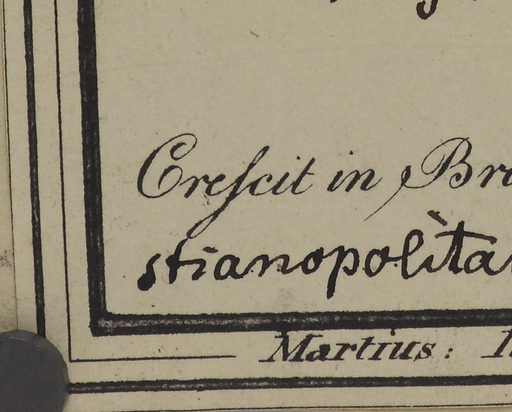 Creſcit in Bra
stianopolita
Martius: